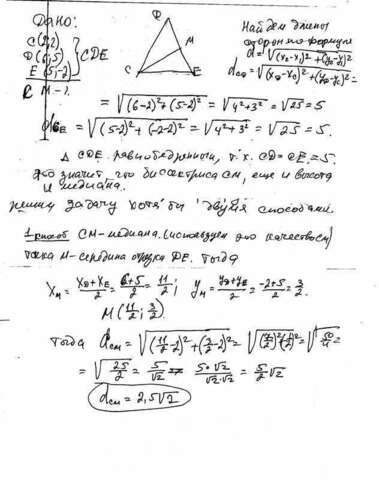 Дано:
C(2;2)
D(6;5) } CDE
E(5;-2)
CM-?
D
M
C
E
Найдем длины
сторон по формуле
d=√((x₂-x₁)²+(y₂-y₁)²
d_CD=√((x_D-x_C)²+(y_D-y_C)²=
=√((6-2)²+(5-2)²=√(4²+3²=√25=5
d_CE=√((5-2)²+(-2-2)²=√(4²+3²=√25=5.
△ CDE равнобедренный, т.к. CD=CE=5.
Это значит, что биссектриса CM, еще и высота
и медиана.
решим задачу хотя бы двумя способами.
1 способ CM-медиана. (используем это качество CM)
точка M-середина отрезка DE. Тогда
x_M=(x_D+x_E)/2=(6+5)/2=11/2; y_M=(y_D+y_E)/2=(-2+5)/2=3/2.
M(11/2; 3/2).
Тогда d_CM=√((11/2-2)²+(3/2-2)²=√((7/2)²+(1/2)²=√(50/4=
=√(25/2)=5/√2=(5·√2)/(√2·√2)=5/2√2
d_CM=2,5√2